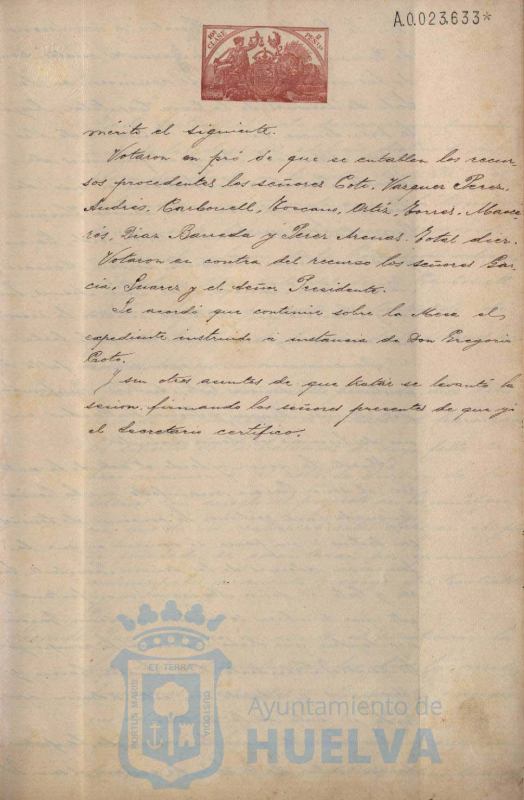 A.0.023.633*
10ª CLASE
2 PESETAS
mérito el siguiente.
Votaron en pró de que se entablen los recur-
sos procedentes los señores Coto, Vazquez Perez,
Andrés, Carbonell, Toscano, Ortíz, Torres, Mance-
Diaz Barreda y Perez Arenas. Total diez.
Votaron en contra del recurso los señores Gar-
cía, Suarez y el Señor Presidente.
Se acordó que continúe sobre la Mesa el
expediente instruido á instancia de Don Gregorio
Y sin otros asuntos de que tratar se levantó la
sesion, firmando los señores presentes de que yó
el Secretario certifico.
PORTUS MARIS
ET TERRÆ
CUSTODIA
Ayuntamiento de
HUELVA